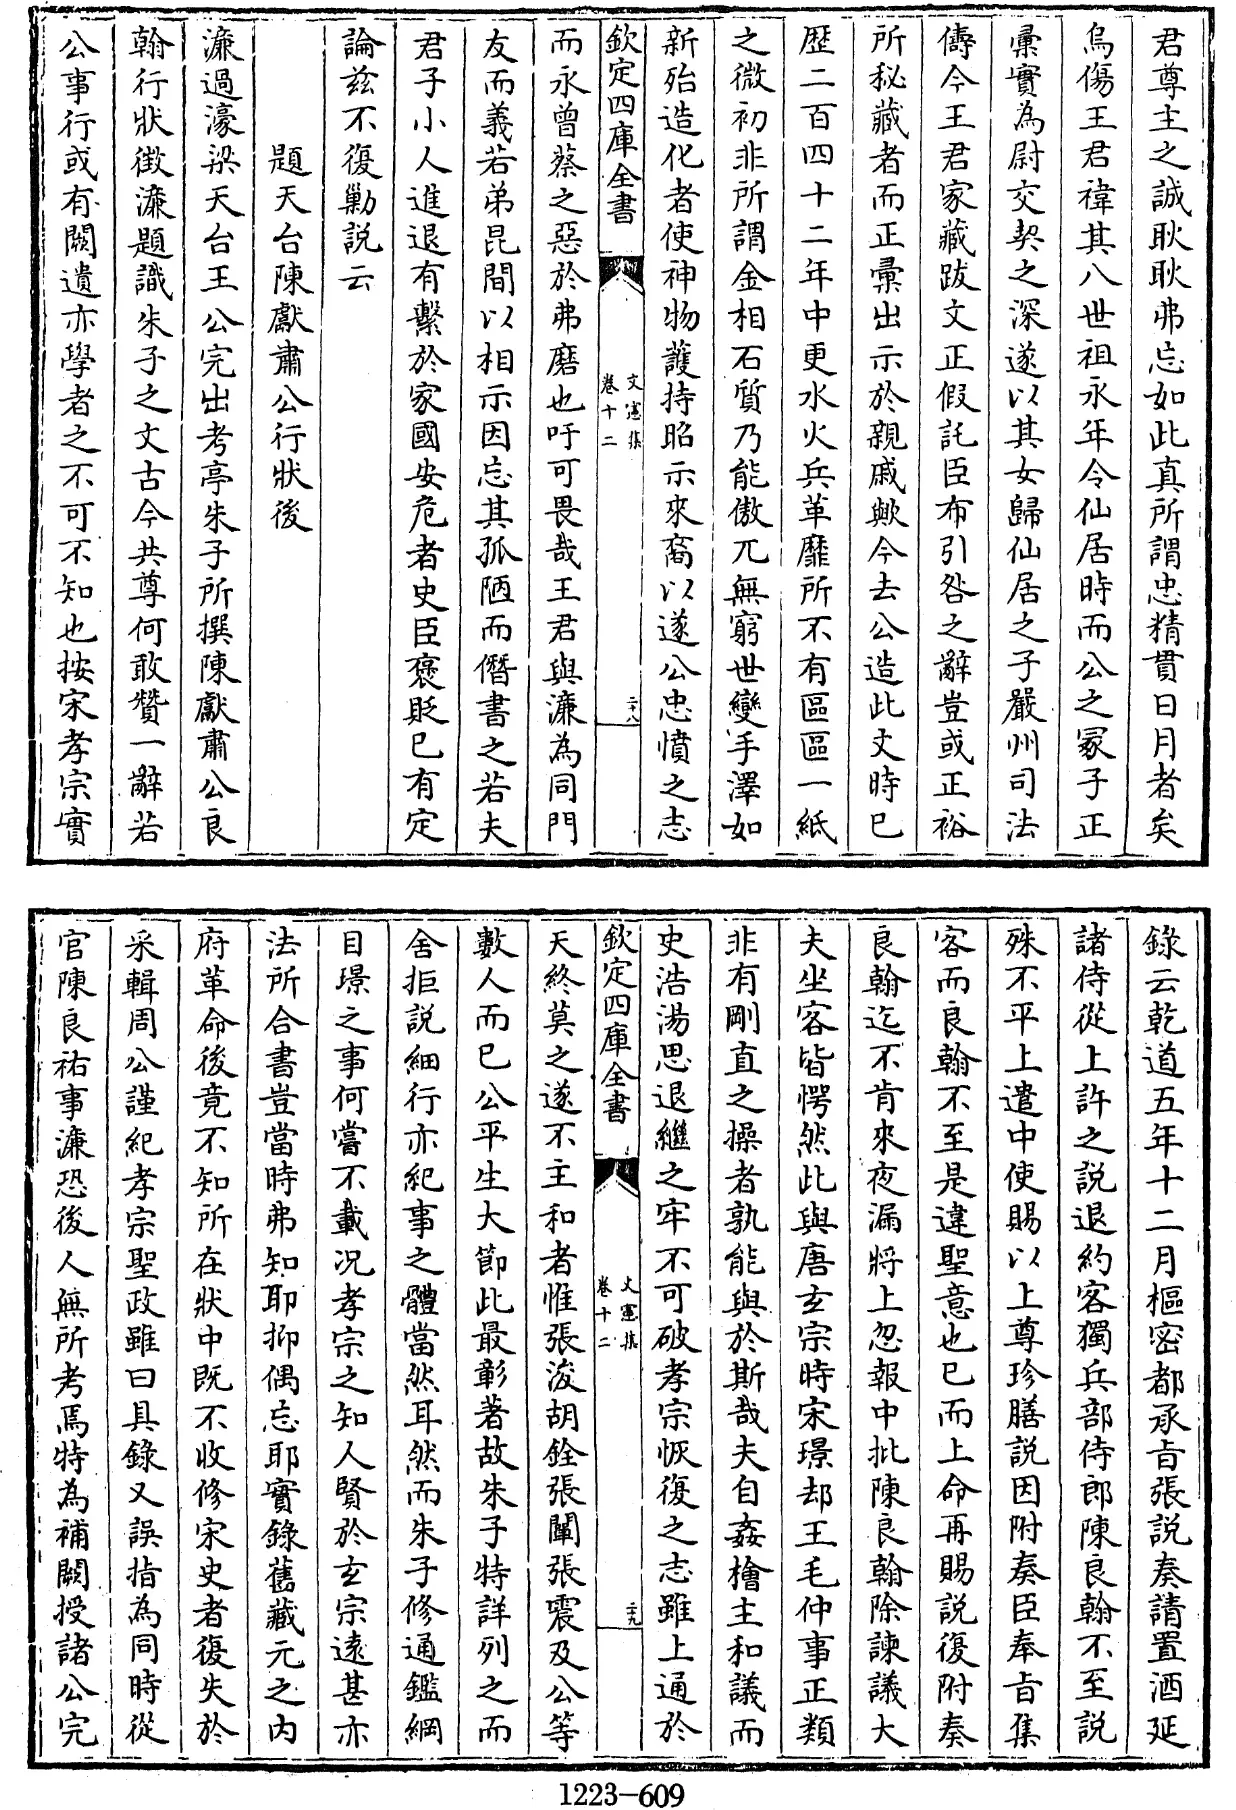 君尊主之誠耿耿弗忘如此真所謂忠精貫日月者矣
烏傷王君禕其八世祖永年令仙居時而公之冢子正
彚實為尉交契之深遂以其女歸仙居之子嚴州司法
儔今王君家藏跋文正假託臣布引咎之辭豈或正裕
所秘藏者而正彚出示於親戚歟今去公造此文時已
歴二百四十二年中更水火兵革靡所不有區區一紙
之微初非所謂金相石質乃能傲兀無窮世變手澤如
新殆造化者使神物護持昭示來裔以遂公忠憤之志
欽定四庫全書
文憲集
卷十二
二十八
而永曾蔡之惡於弗磨也吁可畏哉王君與濂為同門
友而義若弟昆間以相示因忘其孤陋而僭書之若夫
君子小人進退有繫於家國安危者史臣褒貶已有定
論兹不復勦説云
題天台陳獻肅公行狀後
濂過濠梁天台王公完出考亭朱子所撰陳獻肅公良
翰行狀徴濂題識朱子之文古今共尊何敢贊一辭若
公事行或有闕遺亦學者之不可不知也按宋孝宗實
錄云乾道五年十二月樞密都承旨張説奏請置酒延
諸侍從上許之説退約客獨兵部侍郎陳良翰不至説
殊不平上遣中使賜以上尊珍膳説因附奏臣奉旨集
客而良翰不至是違聖意也已而上命再賜説復附奏
良翰迄不肯來夜漏將上忽報中批陳良翰除諫議大
夫坐客皆愕然此與唐玄宗時宋璟却王毛仲事正類
非有剛直之操者孰能與於斯哉夫自姦檜主和議而
史浩湯思退繼之牢不可破孝宗恢復之志雖上通於
欽定四庫全書
文憲集
卷十二
二十九
天終莫之遂不主和者惟張浚胡銓張闡張震及公等
數人而已公平生大節此最彰著故朱子特詳列之而
舍拒説細行亦紀事之體當然耳然而朱子修通鑑綱
目璟之事何嘗不載况孝宗之知人賢於玄宗逺甚亦
法所合書豈當時弗知耶抑偶忘耶實錄舊藏元之内
府革命後竟不知所在狀中既不收修宋史者復失於
采輯周公謹紀孝宗聖政雖曰具錄又誤指為同時從
官陳良祐事濂恐後人無所考焉特為補闕授諸公完
1223-609